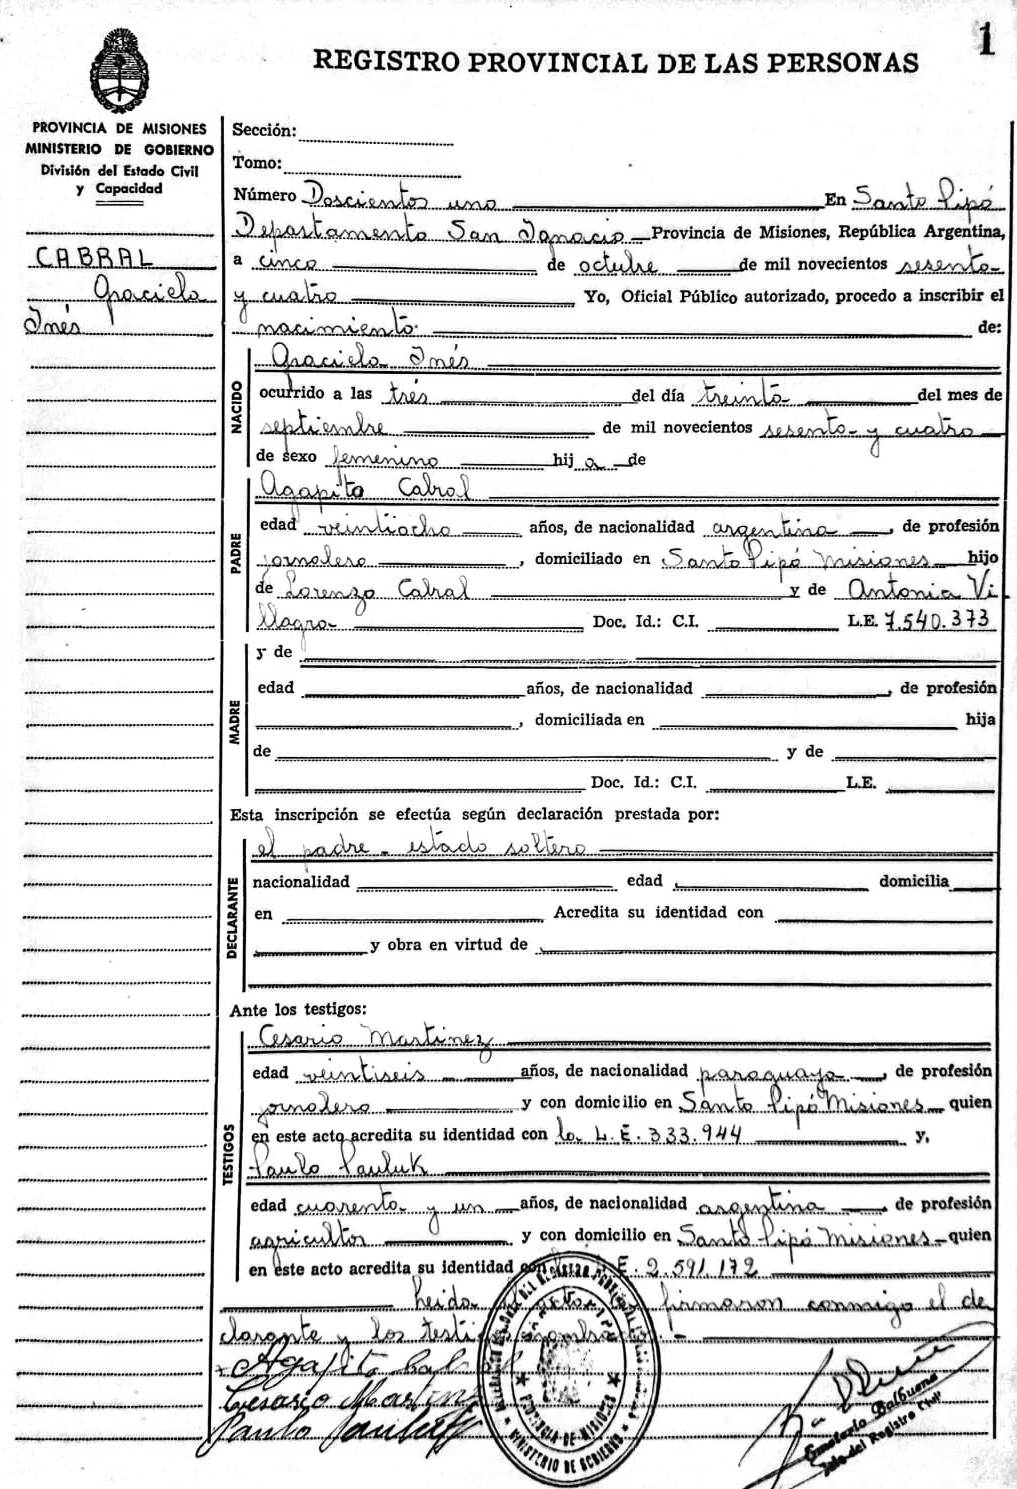 1
REGISTRO PROVINCIAL DE LAS PERSONAS
PROVINCIA DE MISIONES
MINISTERIO DE GOBIERNO
División del Estado Civil
y Capacidad
CABRAL
Graciela
Inés
Sección:
Tomo:
Número Doscientos uno En Santo Pipó
Departamento San Ignacio Provincia de Misiones, República Argentina,
a cinco de octubre de mil novecientos sesenta
y cuatro Yo, Oficial Público autorizado, procedo a inscribir el
nacimiento de:
NACIDO
Graciela Inés
ocurrido a las tres del día treinta del mes de
septiembre de mil novecientos sesenta y cuatro
de sexo femenino hij a de
PADRE
Agapito Cabral
edad veintiocho años, de nacionalidad argentina, de profesión
jornalero, domiciliado en Santo Pipó Misiones hijo
de Lorenzo Cabral y de Antonia Vi-
llagra Doc. Id.: C.I. L.E. 7.540.373
MADRE
y de
edad años, de nacionalidad , de profesión
, domiciliada en hija
de y de
Doc. Id.: C.I. L.E.
Esta inscripción se efectúa según declaración prestada por:
DECLARANTE
el padre - estado soltero
nacionalidad edad domicilia
en Acredita su identidad con
y obra en virtud de
Ante los testigos:
TESTIGOS
Cesario Martinez
edad veintiseis años, de nacionalidad paraguaya, de profesión
jornalero y con domicilio en Santo Pipó Misiones quien
en este acto acredita su identidad con la L.E. 333.944 y,
Paulo Pauluk
edad cuarenta y un años, de nacionalidad argentina, de profesión
agricultor y con domicilio en Santo Pipó Misiones quien
en este acto acredita su identidad con E. 2.591.172
heida firmaron conmigo el de
clarante y los testigos
Agapito Cabral
Cesario Martinez
Paulo Pauluk
PROVINCIA DE MISIONES
MINISTERIO DE GOBIERNO
Balbuena
Jefe del Registro Civil